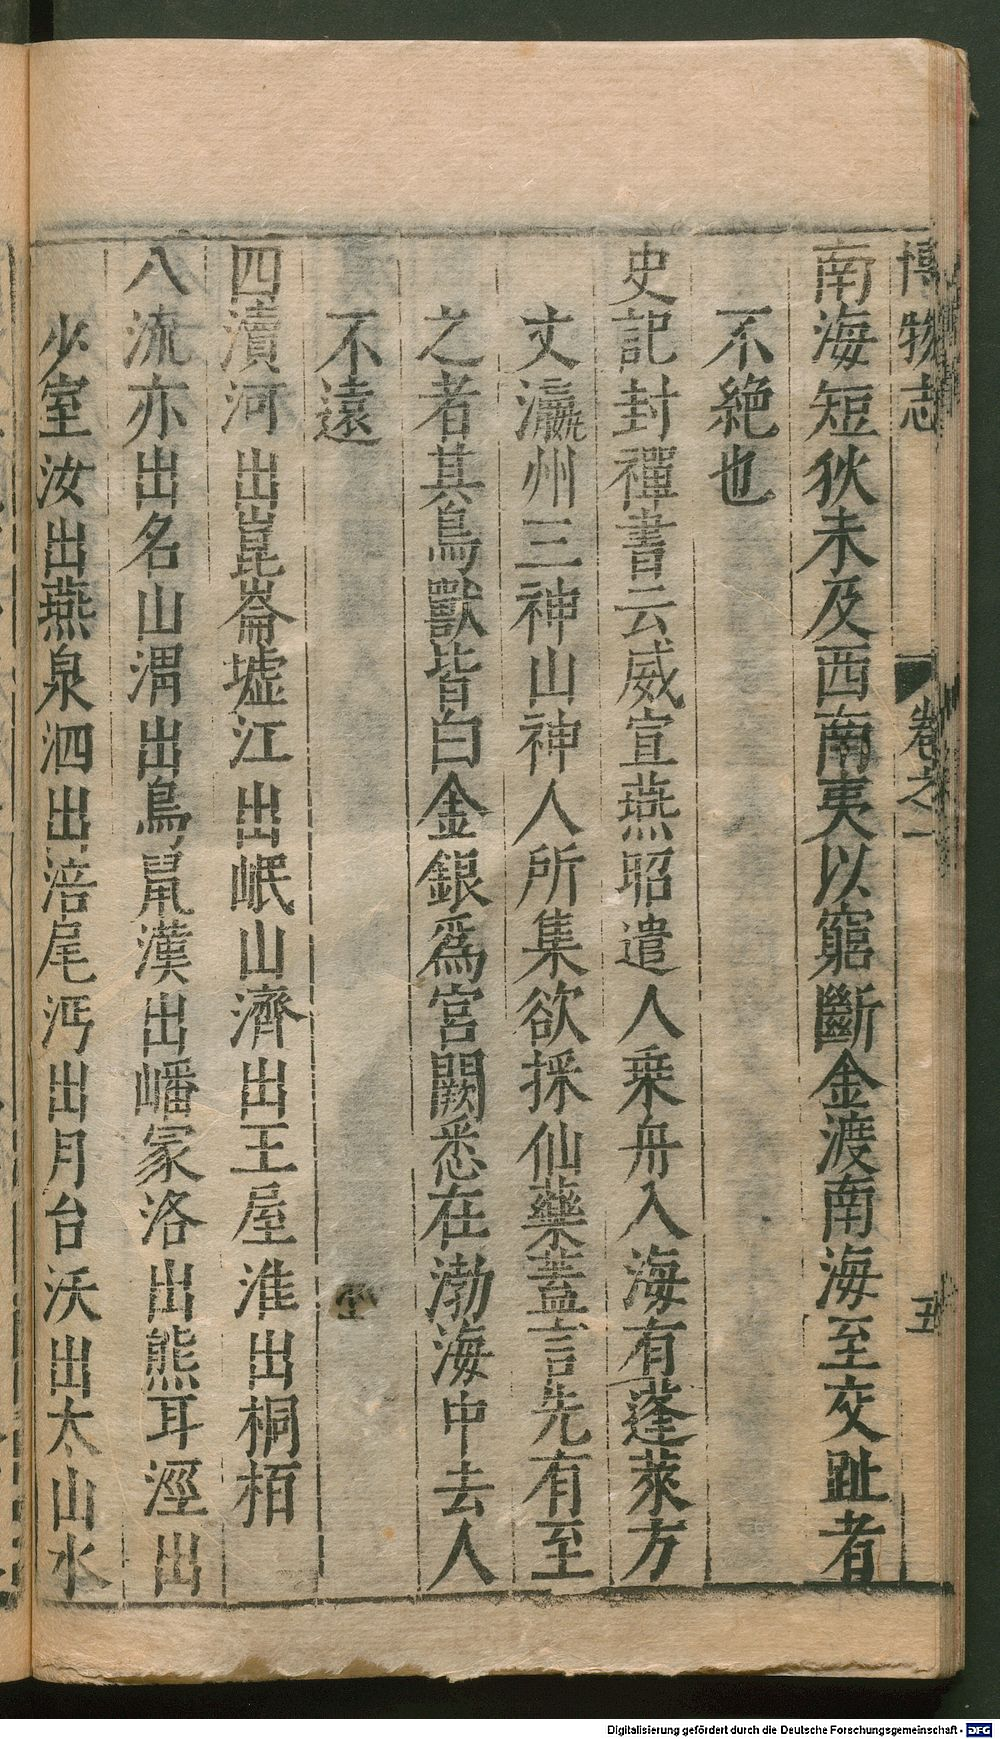 博物志 卷之一 五
南海短狄未及西南夷以窮斷金渡南海至交趾者
不絶也
史記封禪書云威宣燕昭遣人乘舟入海有蓬萊方
丈瀛州三神山神人所集欲採仙藥蓋言先有至
之者其鳥獸皆白金銀爲宮闕悉在渤海中去人
不遠
四瀆河出崑崙墟江出岷山濟出王屋淮出桐栢
八流亦出名山渭出鳥鼠漢出嶓冢洛出熊耳涇出
少室汝出燕泉泗出涪尾沔出月台沃出太山水
Digitalisierung gefördert durch die Deutsche Forschungsgemeinschaft - DFG